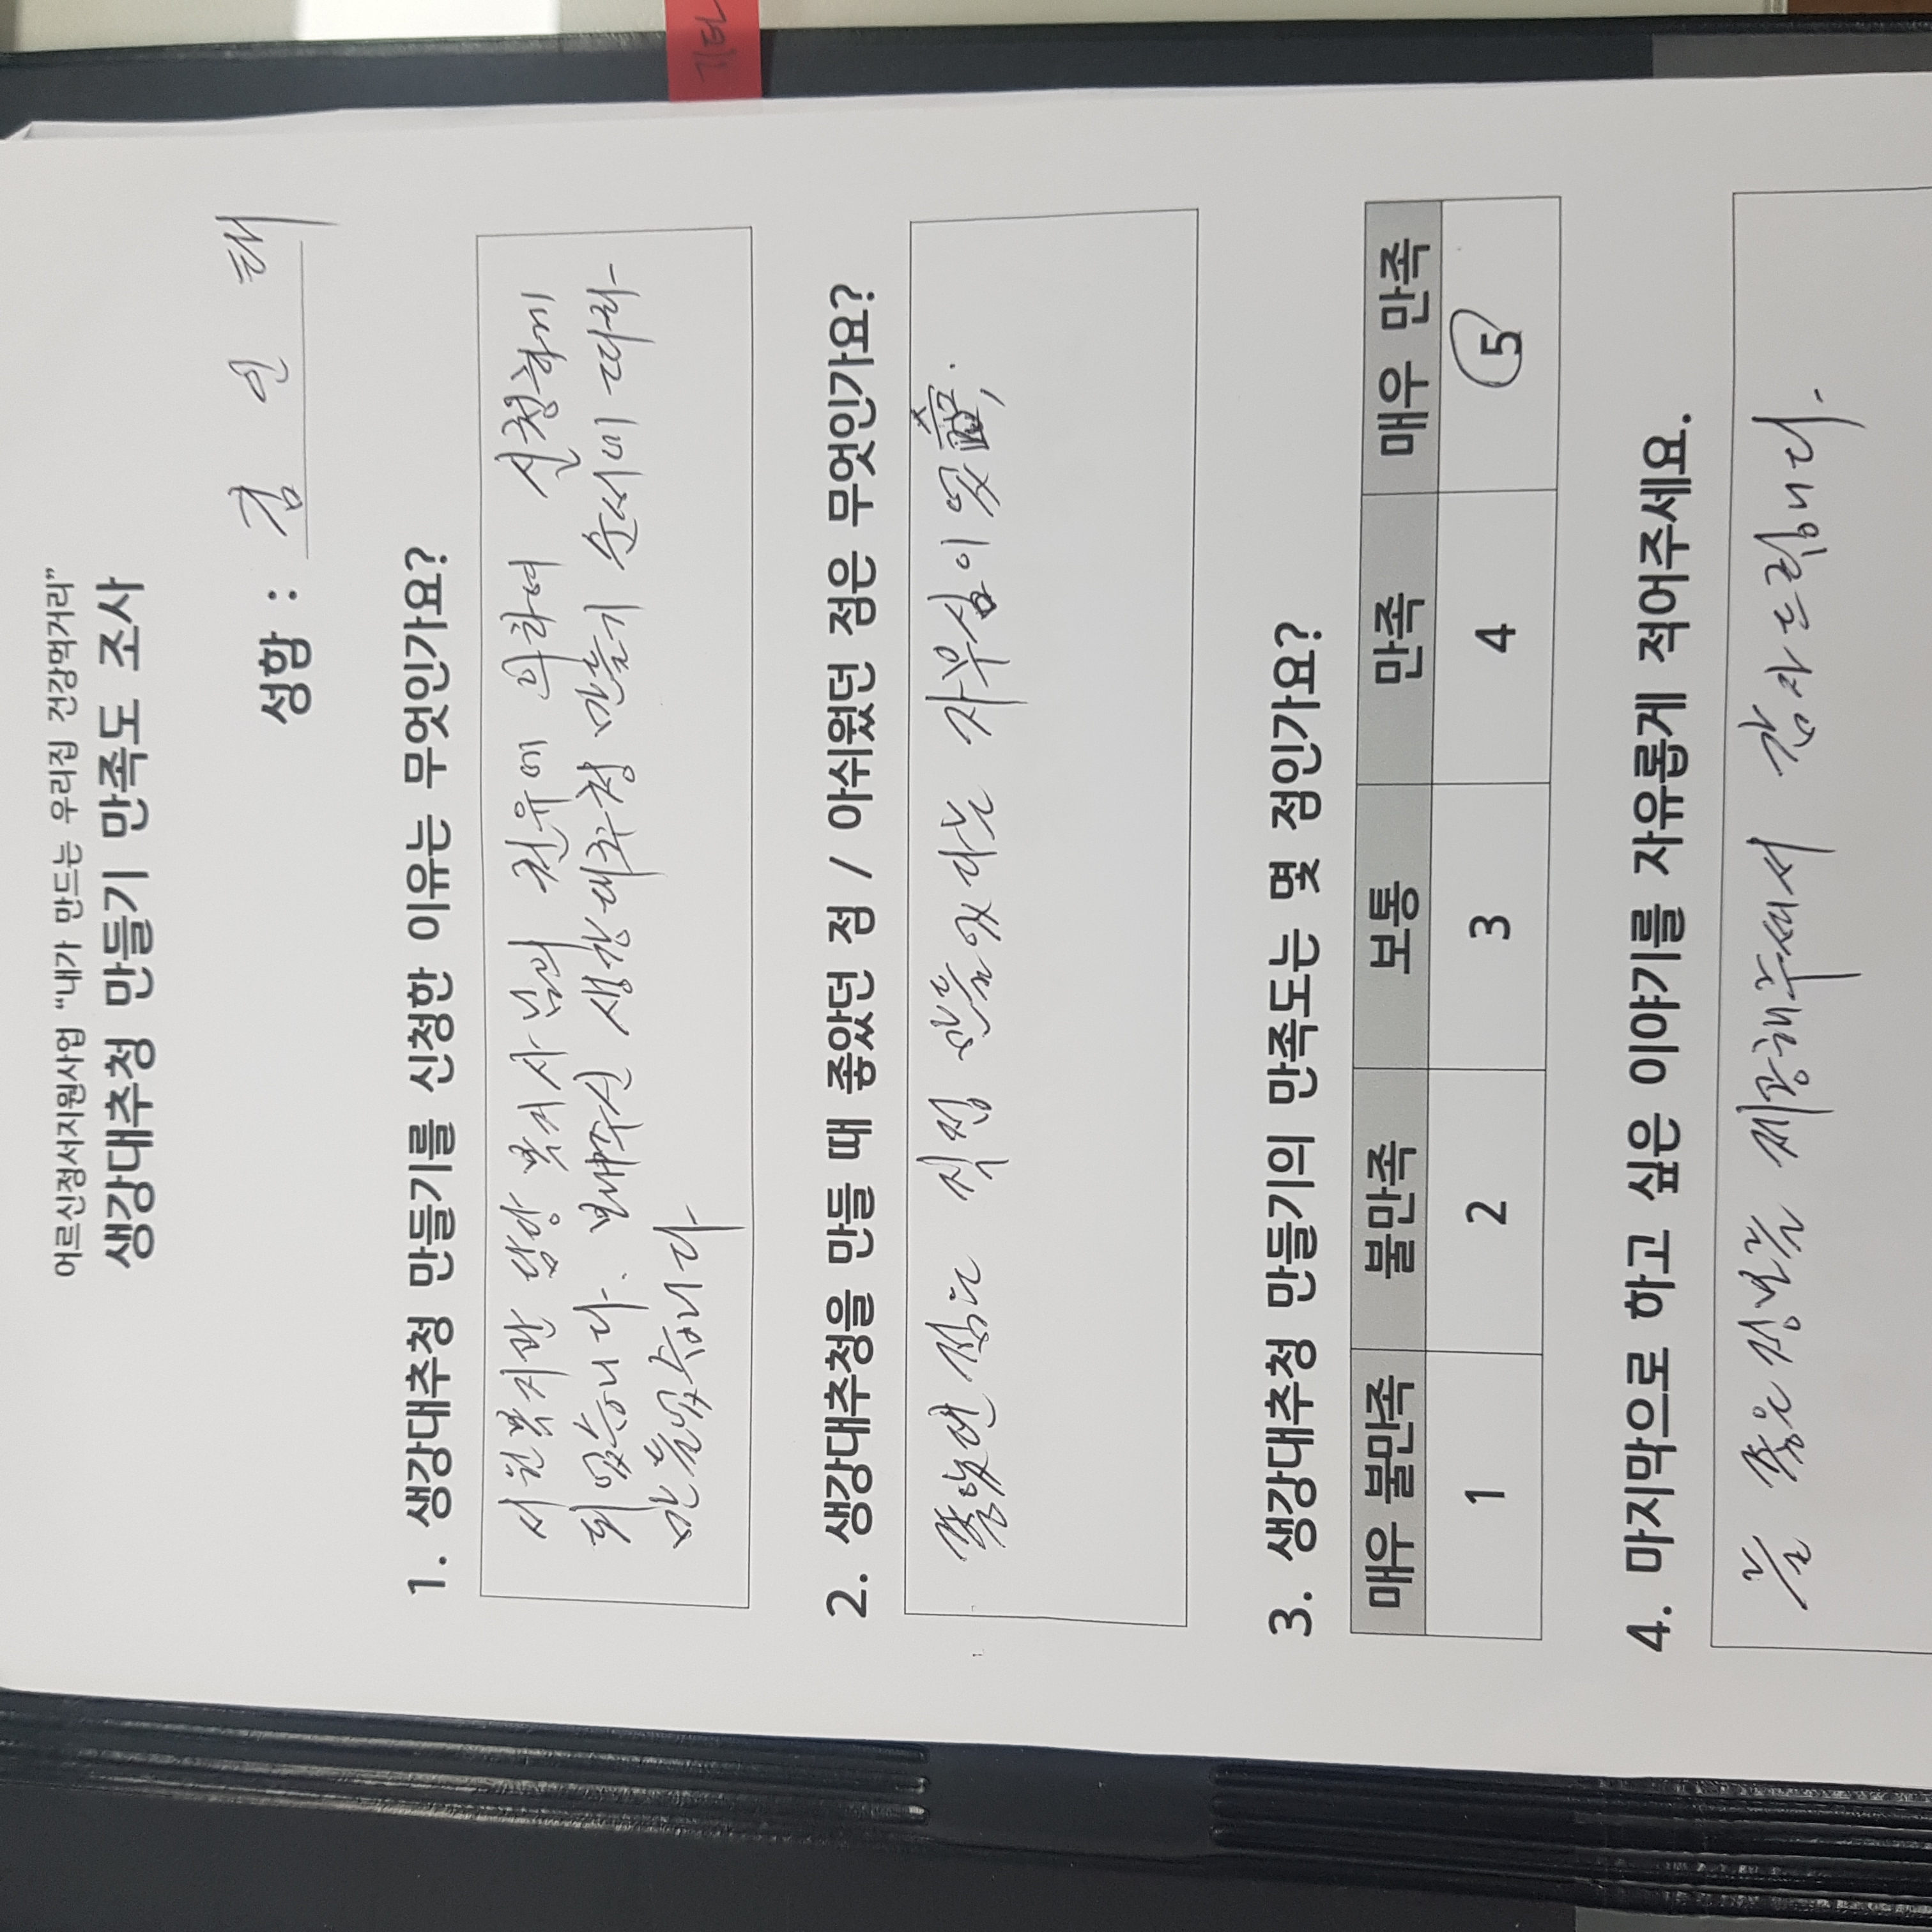 어르신정서지원사업 “내가 만드는 우리집 건강먹거리”
생강대추청 만들기 만족도 조사
성함 : 김 인 태
1. 생강대추청 만들기를 신청한 이유는 무엇인가요?
서원복지관 담당 복지사님의 권유에 의하여 신청하게
되었습니다. 보내주신 생강대추청 만들기 순서에 따라
만들었습니다
2. 생강대추청을 만들 때 좋았던 점 / 아쉬웠던 점은 무엇인가요?
좋았던 점은 직접 만들었다는 자부심이 있음.
3. 생강대추청 만들기의 만족도는 몇 점인가요?
매우 불만족 불만족 보통 만족 매우 만족
1 2 3 4 5
4. 마지막으로 하고 싶은 이야기를 자유롭게 적어주세요.
늘 좋은 정보를 제공해주셔서 감사드립니다.